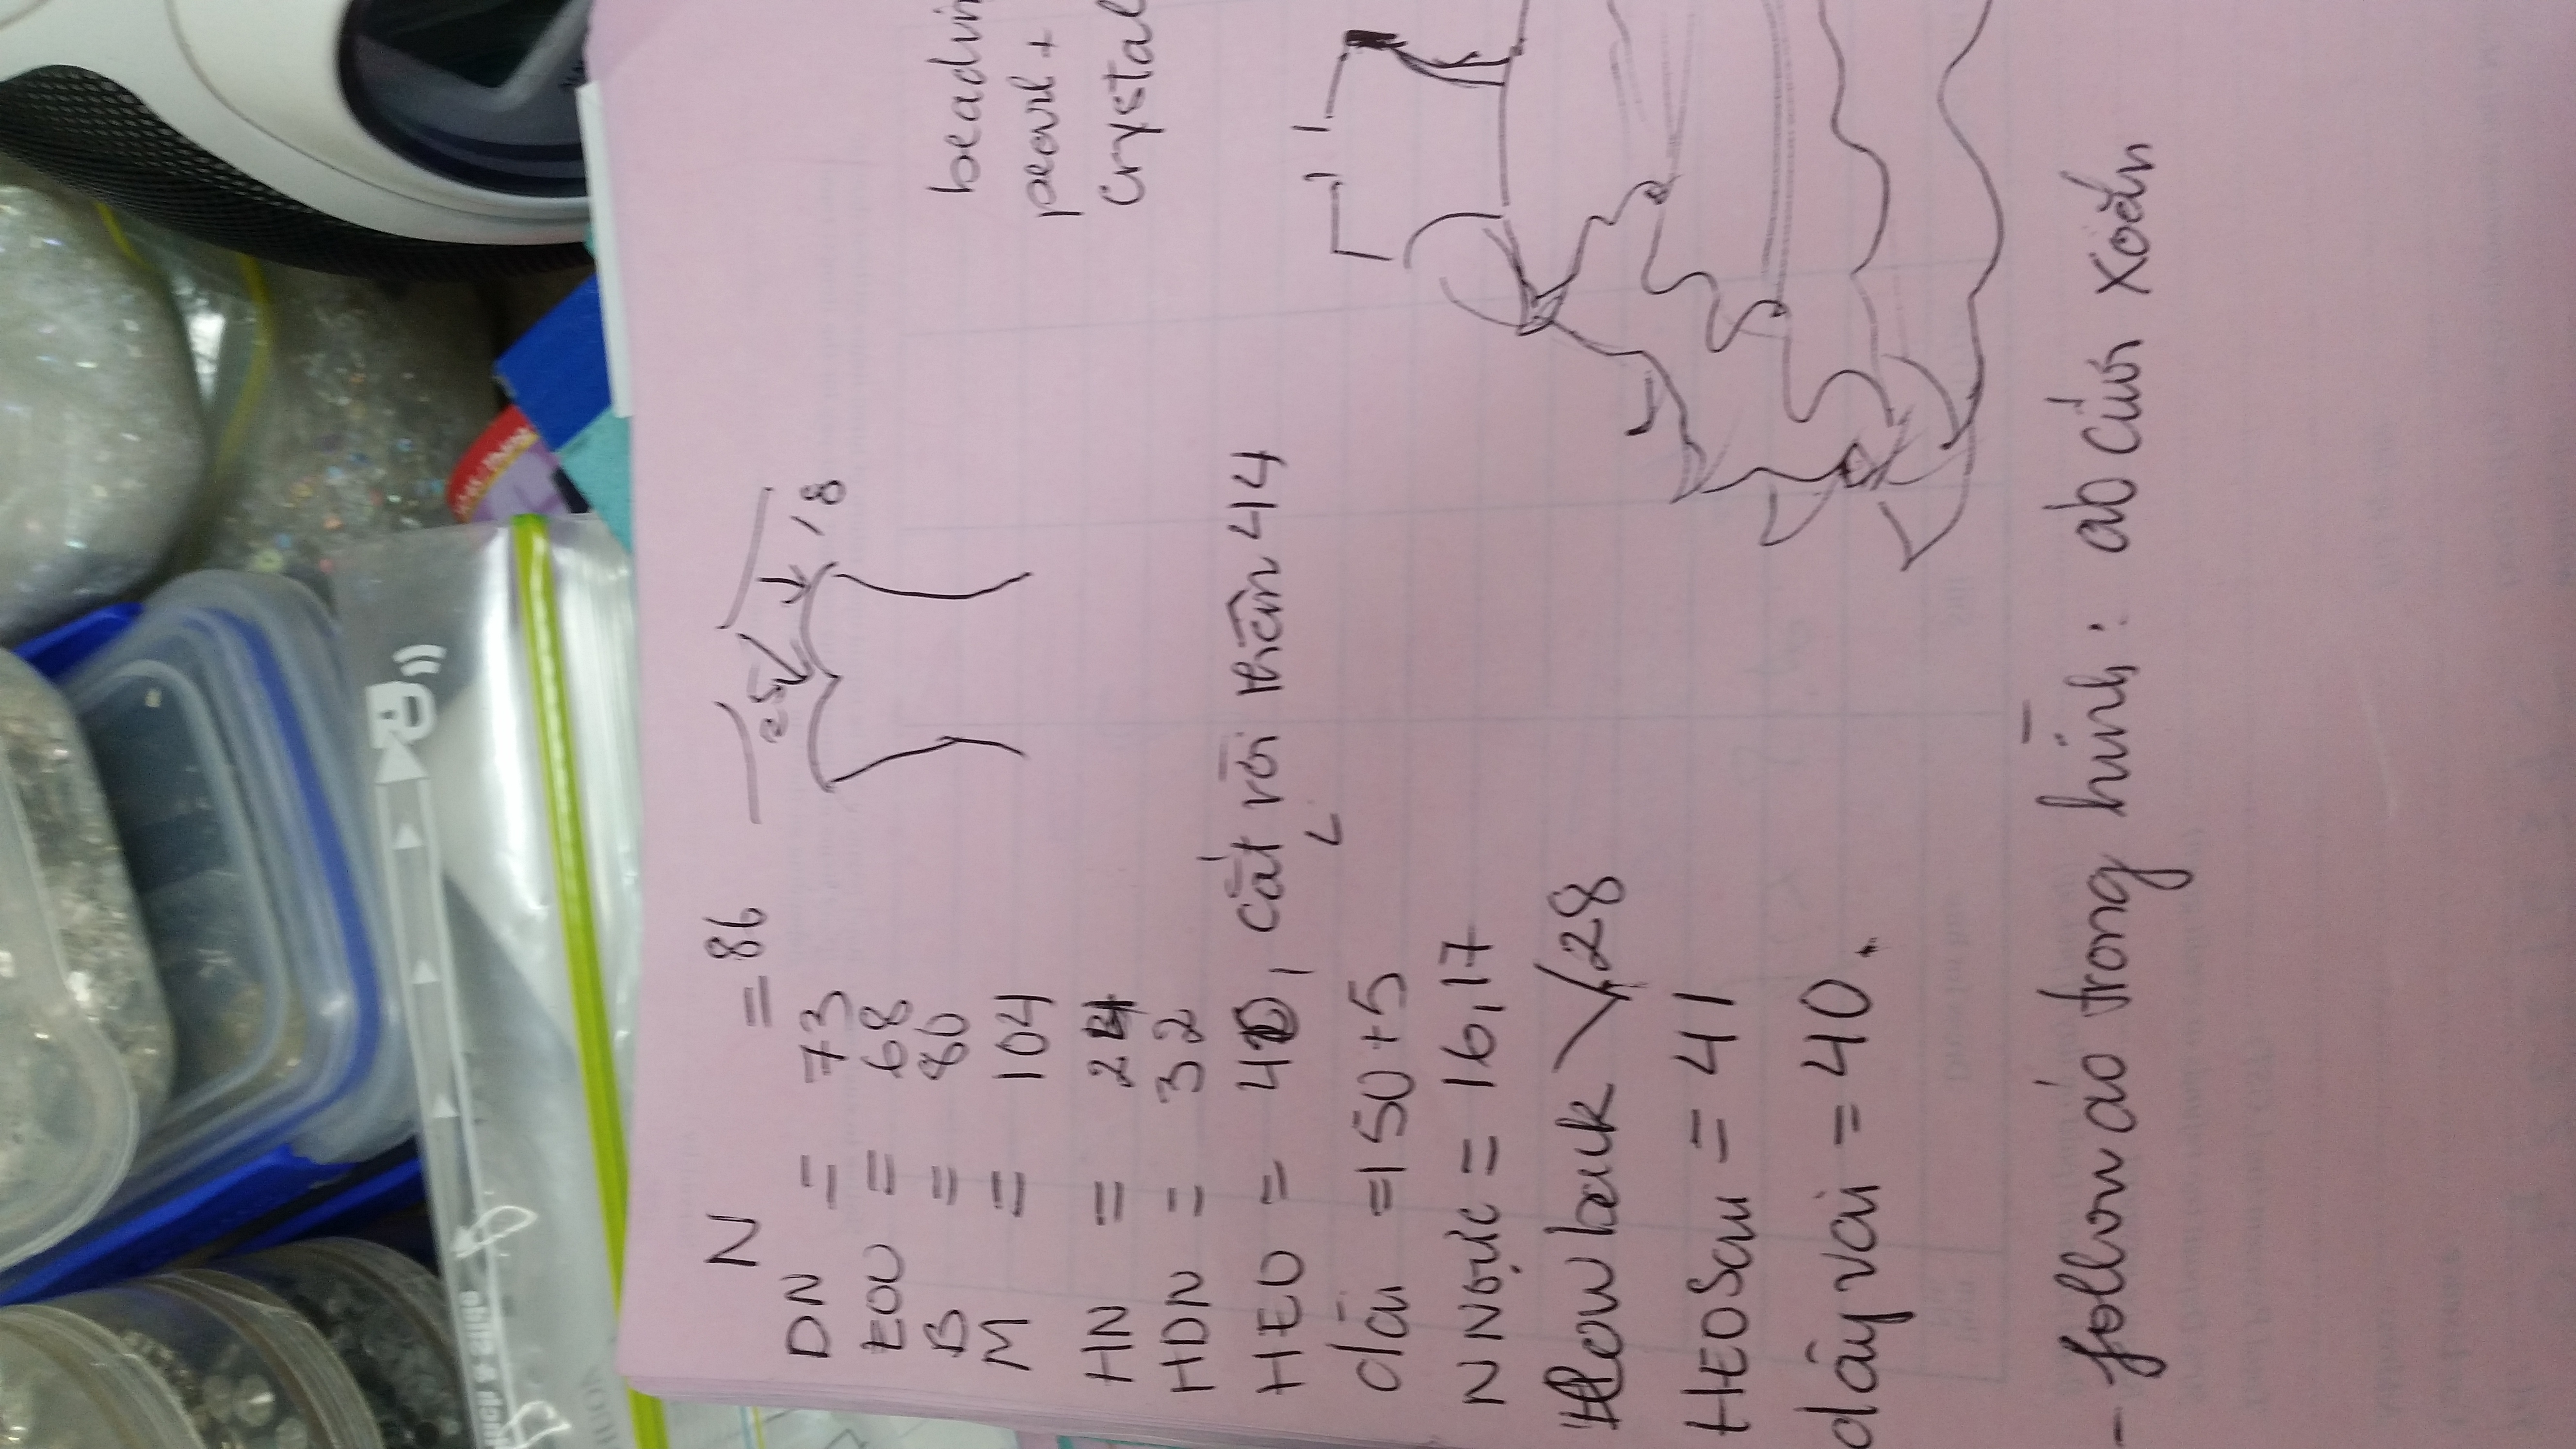 N = 86
DN = 73
EOU = 68
B = 80
M = 104
HN = 24
HDN = 32
HEO = 40, cắt rời thân 44
dài = 150 + 5
N Ngực = 16,17
low back 28
HEO Sau = 41
dây vai = 40.
- follow áo trong hình: áo cưới xoắn
25
18
beadin
pearl +
Crystal
slide &